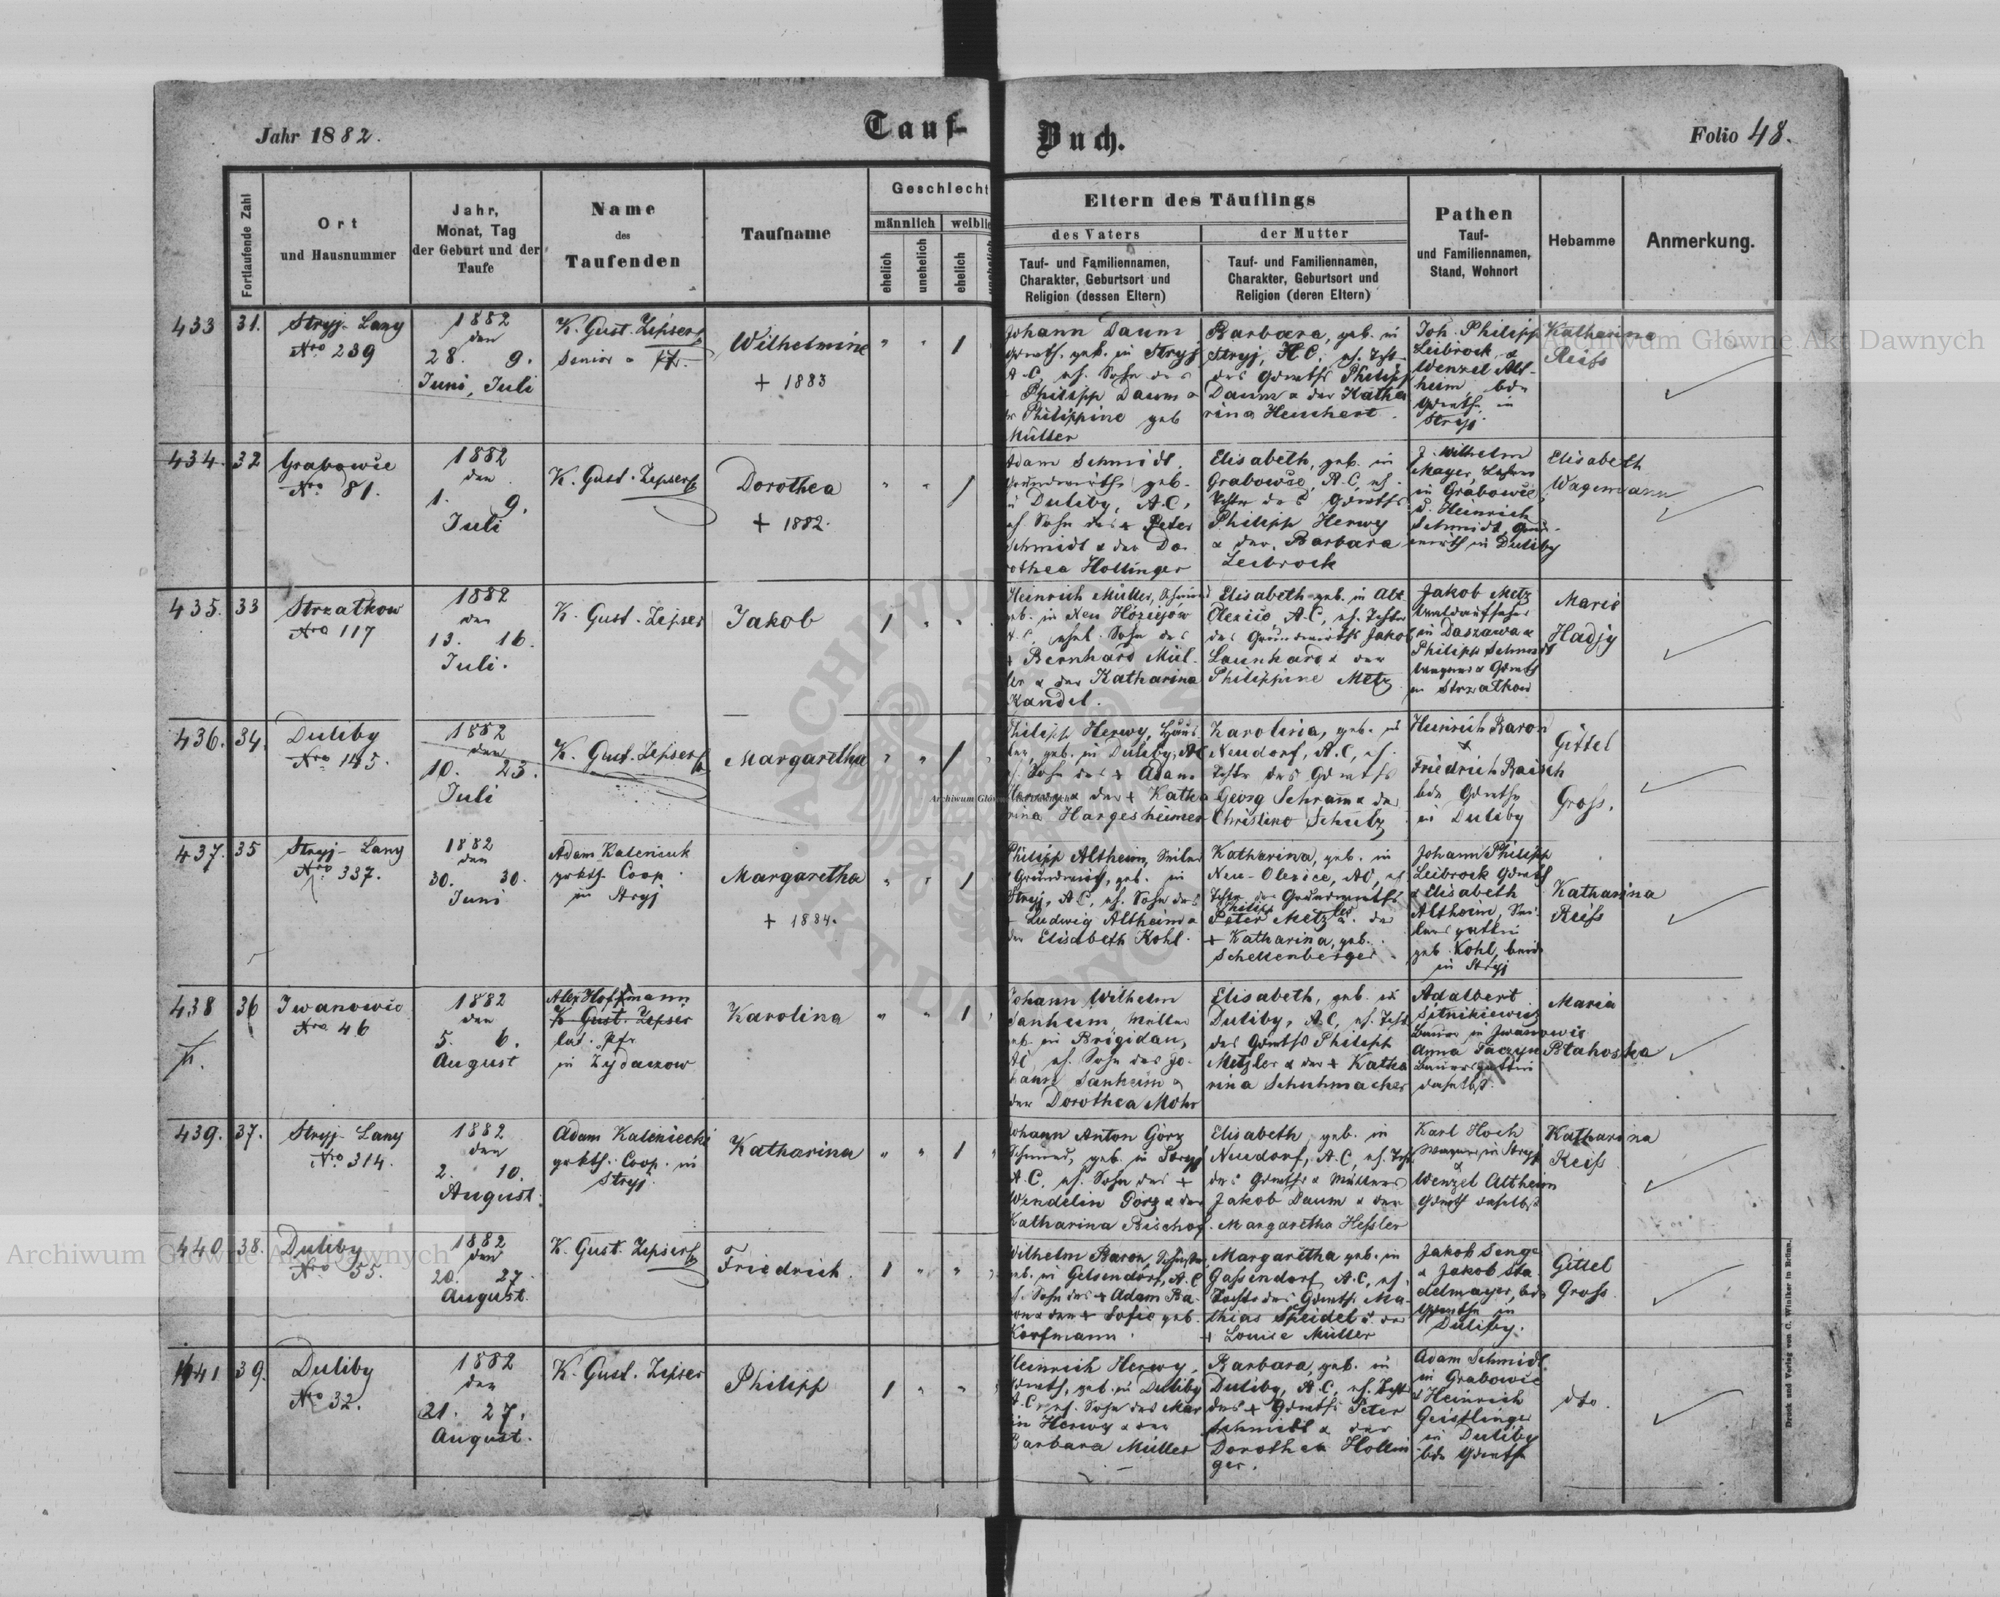 Jahr 1882.
Tauf-
Buch.
Folio 48.
Fortlaufende Zahl
Ort
und Hausnummer
Jahr,
Monat, Tag
der Geburt und der
Taufe
Name
des
Taufenden
Taufname
Geschlecht
männlich
weiblic
ehelich
unehelich
ehelich
unehelich
Eltern des Täuflings
des Vaters
Tauf- und Familiennamen,
Charakter, Geburtsort und
Religion (dessen Eltern)
der Mutter
Tauf- und Familiennamen,
Charakter, Geburtsort und
Religion (deren Eltern)
Pathen
Tauf-
und Familiennamen,
Stand, Wohnort
Hebamme
Anmerkung.
433
31.
Stryj-Lany
Nro 239
1882
den
28. 9.
Juni, Juli
K. Gust. Zipser
Senior
Wilhelmine
+ 1883
" " 1
Johann Daum
geb. in Stryj
A.C., eh. Sohn des
Philipp Daum &
Philippine geb
Müller
Barbara, geb. in
Stryj, H.C., eh. Tcht
des Gdwths Philipp
Daum & der Katha
rina Heuchert.
Joh. Philipp
Leibrock &
Wenzel Alt-
heim, bde
Gdwthe in
Stryj
Katharina
Reifs
434.
32
Grabowce
Nro 81.
1882
den
1. 9.
Juli
K. Gust. Zipser
Dorothea
+ 1882.
" " 1
Adam Schmidt,
Grundwirth, geb.
Duliby, A.C.,
eh. Sohn des + Peter
Schmidt & der Do-
rothea Hollinger
Elisabeth, geb. in
Grabowce, A.C., eh.
Tchtr des Gdwths
Philipp Herwy
& der Barbara
Leibrock
Wilhelm
Mayer, Lehrer
in Grabowce
u. Heinrich
Schmidt, Grd-
wirth in Duliby
Elisabeth
Wagemann
435.
33
Strzatkow
Nro 117
1882
den
13. 16.
Juli.
K. Gust. Zipser
Jakob
1 " "
Heinrich Müller, Schmied
geb. in Neu
A.C., ehel. Sohn des
+ Bernhard Mül-
ler & der Katharina
Kandel.
Elisabeth geb. in Alt
Olexice, A.C., eh. Tchtr
des Grundwirths Jakob
Launhard & der
Philippine Metz
Jakob Metz
Waldaufseher
in Daszawa &
Philipp Schmidt
Wagner & Gdwth
in Strzatkow
Marie
Hadjy
436.
34.
Duliby
Nro 145.
1882
den
10. 23.
Juli
K. Gust. Zipser
Margaretha
" " 1
Philipp Herwy,
geb. in Duliby, AC
eh. Sohn des + Adam
Herwy & der + Katha
rina Hargesheimer
Karolina, geb. in
Neudorf, A.C., eh.
Tchtr des Gdwths
Georg Schramm & der
Christine Schulz
Heinrich Baron
&
Friedrich Raisch
bde Gdwthe
in Duliby
Gittel
Gross.
437.
35
Stryj-Lany
Nro 337.
1882
den
30. 30.
Juni
Adam Kaleniuk
grkth. Coop.
in Stryj
Margaretha
+ 1884.
" " 1
Philipp Altheim, Seiler
& Grundwirth, geb. in
Stryj, A.C., eh. Sohn des
+ Ludwig Altheim &
der Elisabeth Kohl.
Katharina, geb. in
Neu-Olexice, AC, eh
Tchtr des Grundwirths
Philipp
Peter Metzler u. der
+ Katharina, geb.
Schellenberger.
Johann Philipp
Leibrock Gdwth
& Elisabeth
Altheim, Sei-
lersgattin
geb. Kohl, beide
in Stryj
Katharina
Reifs
438
36
Iwanowce
Nro 46
1882
den
5. 6.
August
Alex Hoffmann
K. Gust. Zipser
lat. Pfr.
in Zydaczow
Karolina
" " 1
Johann Wilhelm
Sanheim, Müller
geb. in Brigidau,
AC, eh. Sohn des Jo-
hann Sanheim &
der Dorothea Mohr
Elisabeth, geb. in
Duliby, A.C., eh. Tcht
des Gdwths Philipp
Metzler & der + Katha
rina Schuhmacher
Adalbert
Sitnikiewicz
Bauer in Iwanowce
Anna Taczyn
Bauersgattin
daselbst.
Maria
Btahoska
439.
37.
Stryj-Lany
Nro 314.
1882
den
2. 10.
August.
Adam Kaleniecki
grkth. Coop. in
Stryj
Katharina
" " 1
Johann Anton Görz
Schmied, geb. in Stryj
A.C., eh. Sohn des +
Wendelin Görz & der
Katharina Bischof.
Elisabeth, geb. in
Neudorf, A.C., eh. Tcht
des Gdwths & Müllers
Jakob Daum & der
Margaretha Hefsler
Karl Hoch
Wagner in Stryj
&
Wenzel Altheim
Gdwth daselbst
Katharina
Reifs
440
38.
Duliby
Nro 55.
1882
den
20. 27.
August.
K. Gust. Zipser
Friedrich.
1 " "
Wilhelm Baron, Schuster
geb. in Gelsendorf, A.C.
eh. Sohn des + Adam Ba-
ron & der + Sofie geb.
Korfmann.
Margaretha geb. in
Gassendorf, A.C., eh.
Tochter des Gdwths Ma-
thias Speidel u. der
+ Louise Müller
Jakob Senge
& Jakob Sta-
delmayer, bde
Gdwthe in
Duliby.
Gittel
Gross.
441
39.
Duliby
Nro 32.
1882
den
21. 27.
August.
K. Gust. Zipser
Philipp
1 " "
Heinrich Herwy,
Gdwth, geb. in Duliby
A.C., eh. Sohn des Mar
tin Herwy & der
Barbara Müller
Barbara, geb. in
Duliby, A.C., eh. Tchtr
des + Gdwths Peter
Schmidt & der
Dorothea Hollin
ger.
Adam Schmidt
in Grabowce
& Heinrich
Geistlinger
in Duliby
bde Gdwthe
dto.
Druck und Verlag von C. Winiker in Brünn.
Archiwum Główne Akt Dawnych
Archiwum Główne Akt Dawnych
Archiwum Główne Akt Dawnych